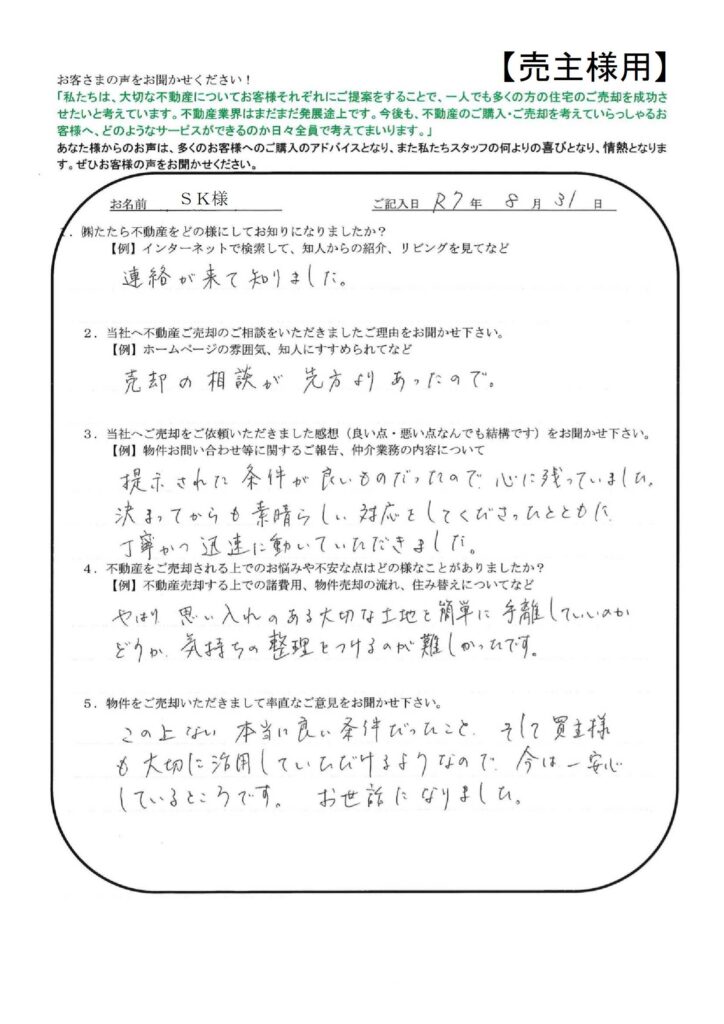 【売主様用】
お客さまの声をお聞かせください！
「私たちは、大切な不動産についてお客様それぞれにご提案をすることで、一人でも多くの方の住宅のご売却を成功さ
せたいと考えています。不動産業界はまだまだ発展途上です。今後も、不動産のご購入・ご売却を考えていらっしゃるお
客様へ、どのようなサービスができるのか日々全員で考えてまいります。」
あなた様からのお声は、多くのお客様へのご購入のアドバイスとなり、また私たちスタッフの何よりの喜びとなり、情熱となりま
す。ぜひお客様の声をお聞かせください。
お名前 ＳＫ様 ご記入日 R7 年 8 月 31 日
1．㈱たたら不動産をどの様にしてお知りになりましたか？
【例】インターネットで検索して、知人からの紹介、リビングを見てなど
連絡が来て知りました。
2．当社へ不動産ご売却のご相談をいただきましたご理由をお聞かせ下さい。
【例】ホームページの雰囲気、知人にすすめられてなど
売却の相談が 先方よりあったので。
3．当社へご売却をご依頼いただきました感想（良い点・悪い点なんでも結構です）をお聞かせ下さい。
【例】物件お問い合わせ等に関するご報告、仲介業務の内容について
提示された条件が良いものだったので、心に残っていました。
決まってからも素晴らしい対応をしてくださったとともに、
丁寧かつ迅速に動いていただきました。
4．不動産をご売却される上でのお悩みや不安な点はどの様なことがありましたか？
【例】不動産売却する上での諸費用、物件売却の流れ、住み替えについてなど
やはり 思い入れのある大切な土地を簡単に手離していいのか
どうか、気持ちの整理をつけるのが難しかったです。
5．物件をご売却いただきまして率直なご意見をお聞かせ下さい。
この上ない 本当に良い条件だったこと、そして買主様
も大切に活用していただけるようなので、今は一安心
しているところです。 お世話になりました。